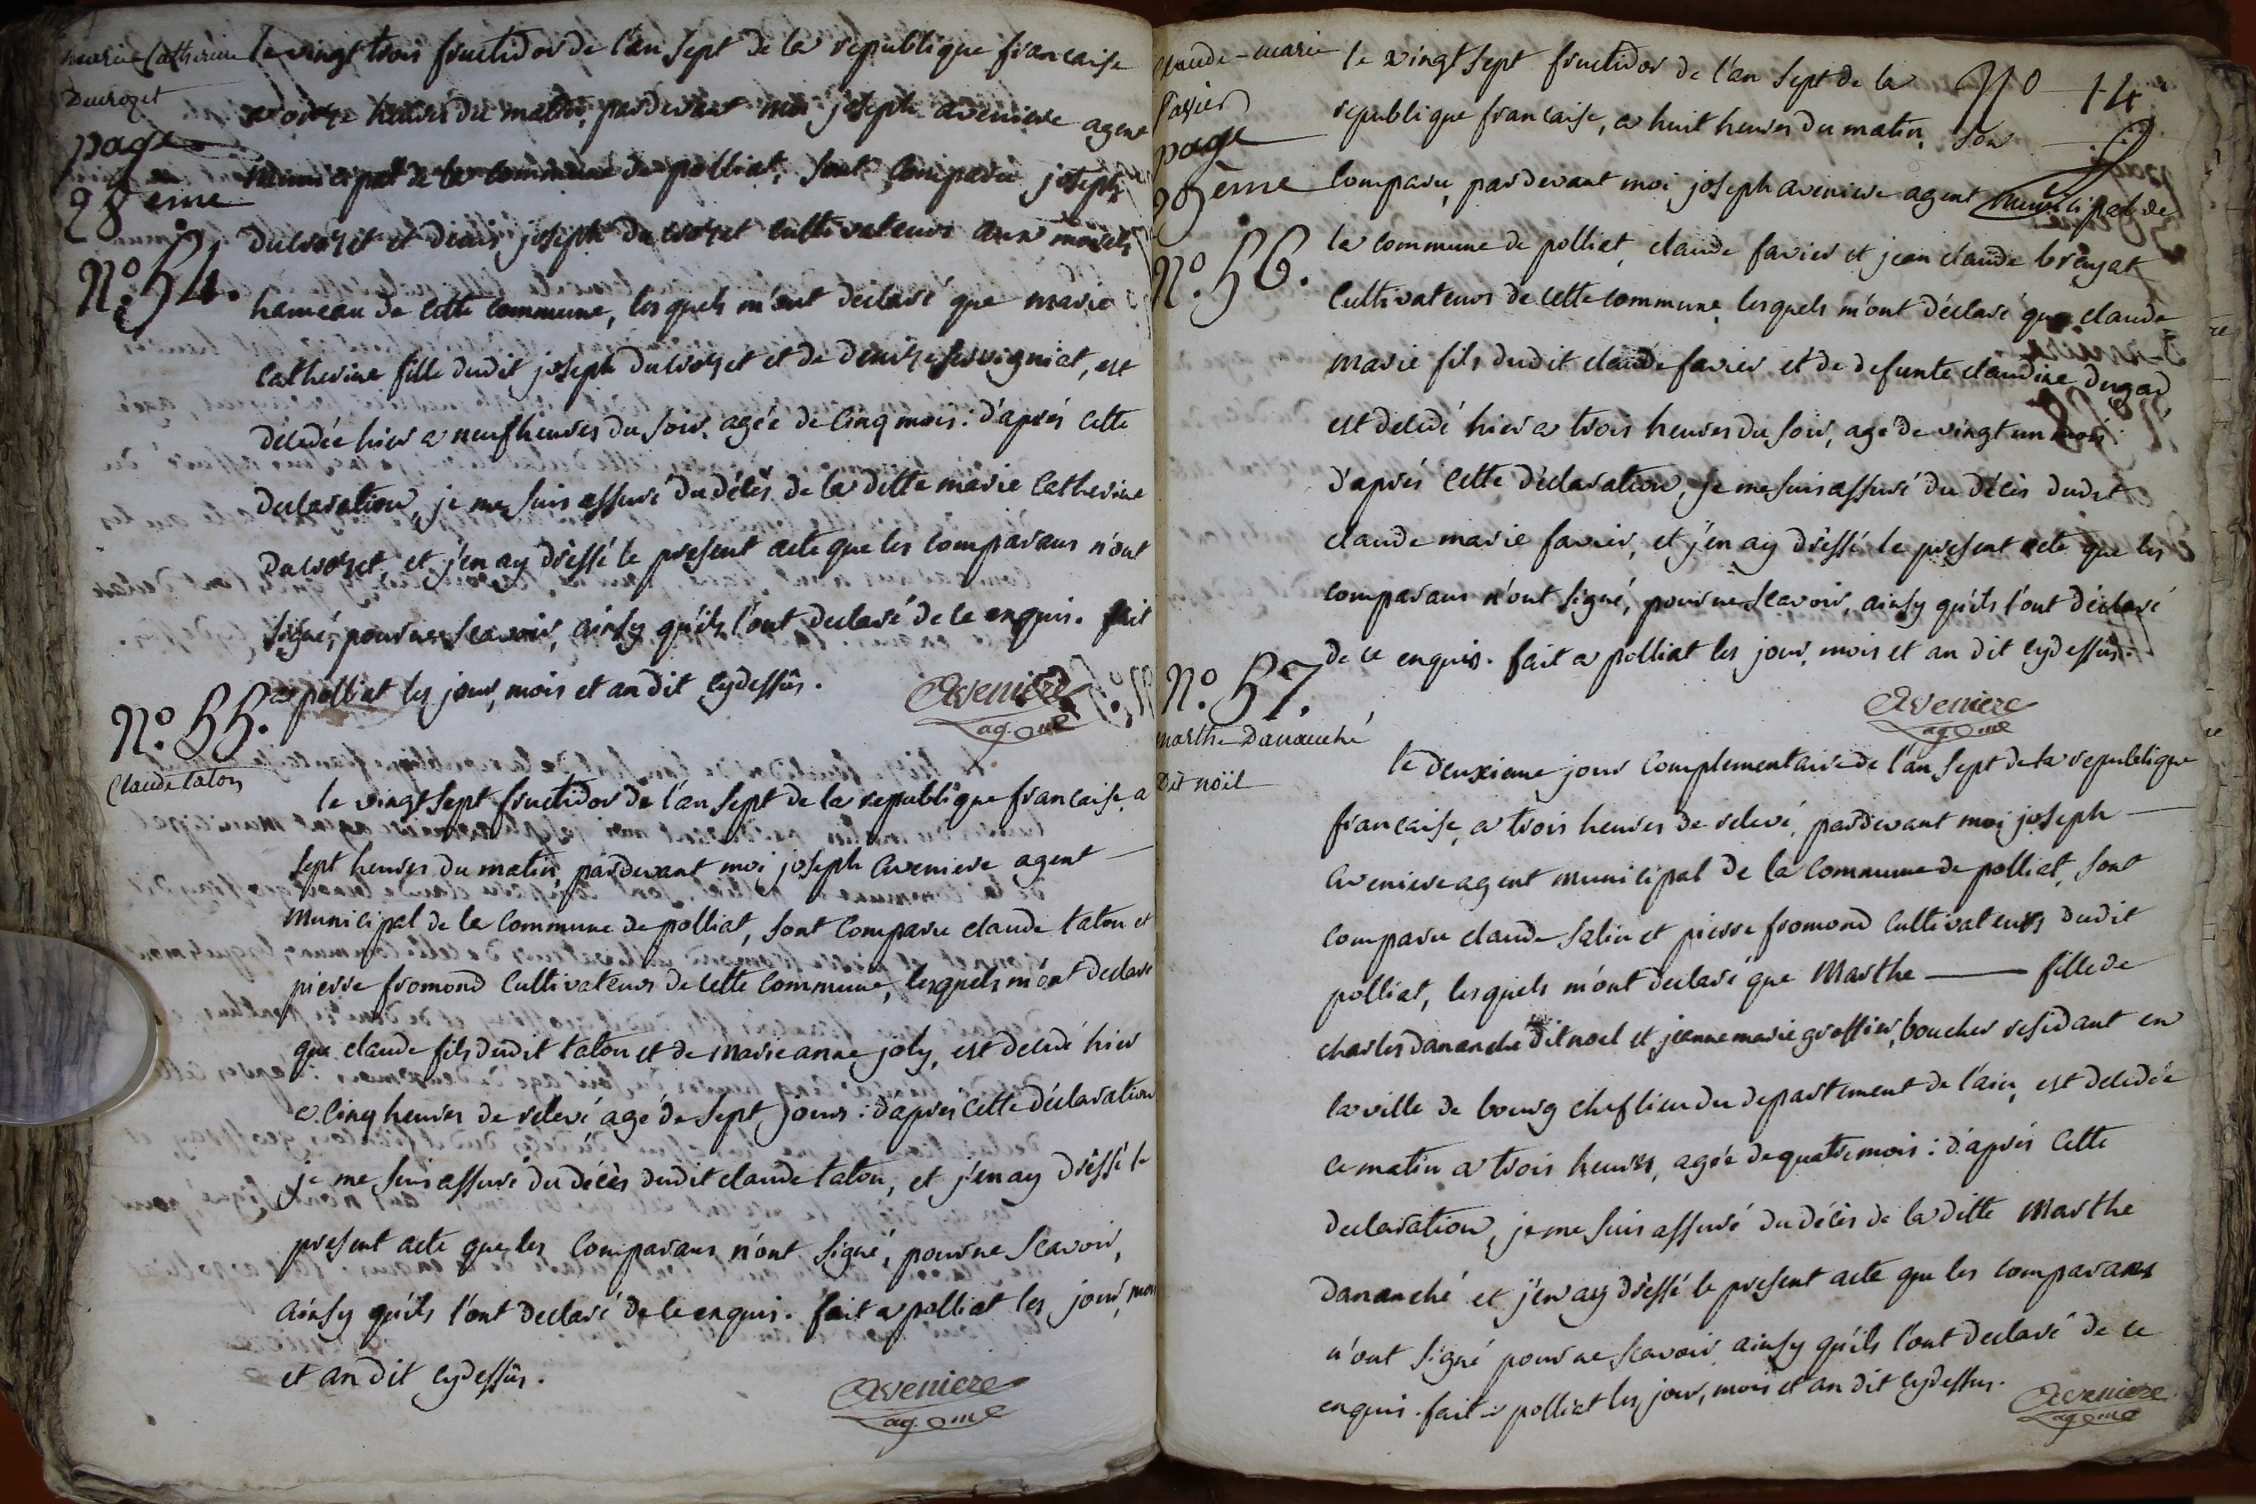 marie Catherine
Ducrozet
page
28ème
N.º 54.
le vingt trois fructidor de l'an sept de la republique francaise
a onze heures du matin, pardevant moi joseph aveniere agent
municipal de la commune de polliat, sont comparu joseph
ducrozet et denis joseph ducrozet cultivateurs aux morets
hameau de cette commune, lesquels m'ont declaré que marie
catherine fille dudit joseph ducrozet et de denize servigniat, est
décédée hier a neuf heures du soir, agée de cinq mois: d'aprés cette
declaration, je me suis assuré du décès de la ditte marie catherine
ducrozet, et j'en ay dressé le present acte que les comparans n'ont
signé, pour ne scavoir, ainsy qu'ils l'ont declaré de ce enquis. fait
a polliat les jour, mois et an dit cydessûs.
Aveniere
ag. me
N.º 55.
Claude taton
le vingt sept fructidor de l'an sept de la republique francaise, a
sept heures du matin, pardevant moi joseph aveniere agent
municipal de la commune de polliat, sont comparu claude taton et
pierre fromond cultivateurs de cette commune, lesquels m'ont declaré
que claude fils dudit taton et de marie anne joly, est decedé hier
a cinq heures de relevé, agé de sept jours: d'apres cette déclaration
je me suis assuré du décès dudit claude taton, et j'en ay dressé le
present acte que les comparans n'ont signé, pour ne scavoir,
ainsy qu'ils l'ont declaré de ce enquis. fait a polliat les jour, mois
et an dit cydessûs.
Aveniere
ag. me
Claude-marie
favier
page
28ème
N.º 56.
N.º 14
le vingt sept fructidor de l'an sept de la
republique francaise, a huit heures du matin, son
comparu, pardevant moi joseph aveniere agent municipal de
la commune de polliat, claude favier et jean claude brevzat
cultivateurs de cette commune, lesquels m'ont déclaré que claude
marie fils dudit claude favier et de defunte claudine dugad
est decedé hier a trois heures du soir, agé de vingt un mois:
d'aprés cette déclaration, je me suis assuré du décès dudit
claude marie favier, et j'en ay dressé le present acte que les
comparans n'ont signé, pour ne scavoir, ainsy qu'ils l'ont déclaré
de ce enquis. fait a polliat les jour, mois et an dit cydessûs.
Aveniere
ag. me
N.º 57.
marthe Dananché
Dit noël
le deuxieme jour complementaire de l'an sept de la republique
francaise, a trois heures de relevé, pardevant moi joseph
aveniere agent municipal de la commune de polliat, sont
comparu claude salin et pierre fromond cultivateurs dudit
polliat, lesquels m'ont declaré que Marthe fille de
charles dananché dit noel et jeanne marie grossier, boucher residant en
la ville de bourg chef lieu du departement de l'ain, est decedée
ce matin a trois heures, agée de quatre mois: d'aprés cette
declaration, je me suis assuré du décès de la ditte Marthe
dananché et j'en ay dressé le present acte que les comparans
n'ont signé pour ne scavoir, ainsy qu'ils l'ont declaré de ce
enquis. fait a polliat les jour, mois et an dit cydessus.
Aveniere
ag. me